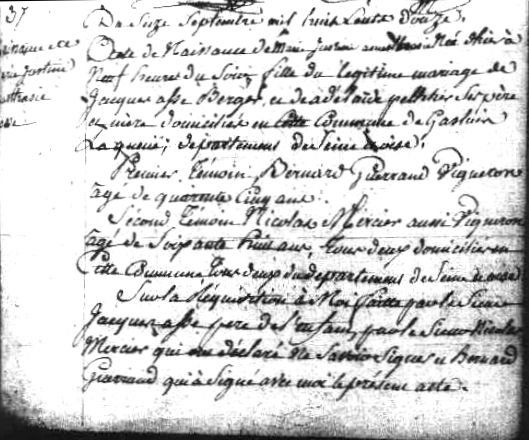 37
Du Seize Septembre mil huit Cents douze,
Acte de Naissance de Marie Justine née Hier à
Neuf heures du Soir fille du legitime mariage de
Jacques asse Berger, et de adelaïde pelletier Ses père
et mère domiciliés en Cette Commune de Gastins
La queuë, departement de Seine et oise,
Premier Témoin Bernard Guerraud Vigneron
agé de quarente Cinq ans.
Second Témoin Nicolas Mercier aussi Vigneron
agé de Soixante huit ans, tous deux domiciliés en
Cette Commune tous deux du departement de Seine et oise
Sur la Réquisition à Moi faitte par le Sieur
Jacques asse pere de l'enfant, par le Sieur Nicolas
Mercier qui ont déclaré Ne Savoir Signer et Bernard
Guerraud qui à Signé avec moi le présent acte.